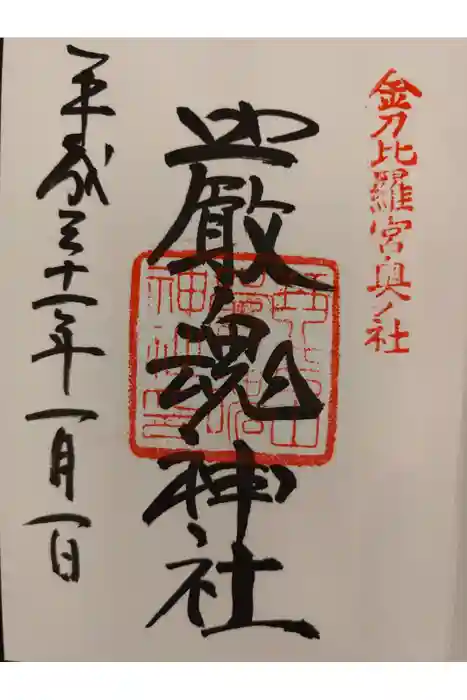 金刀比羅宮奥ノ社
巌魂神社
平成三十一年一月一日